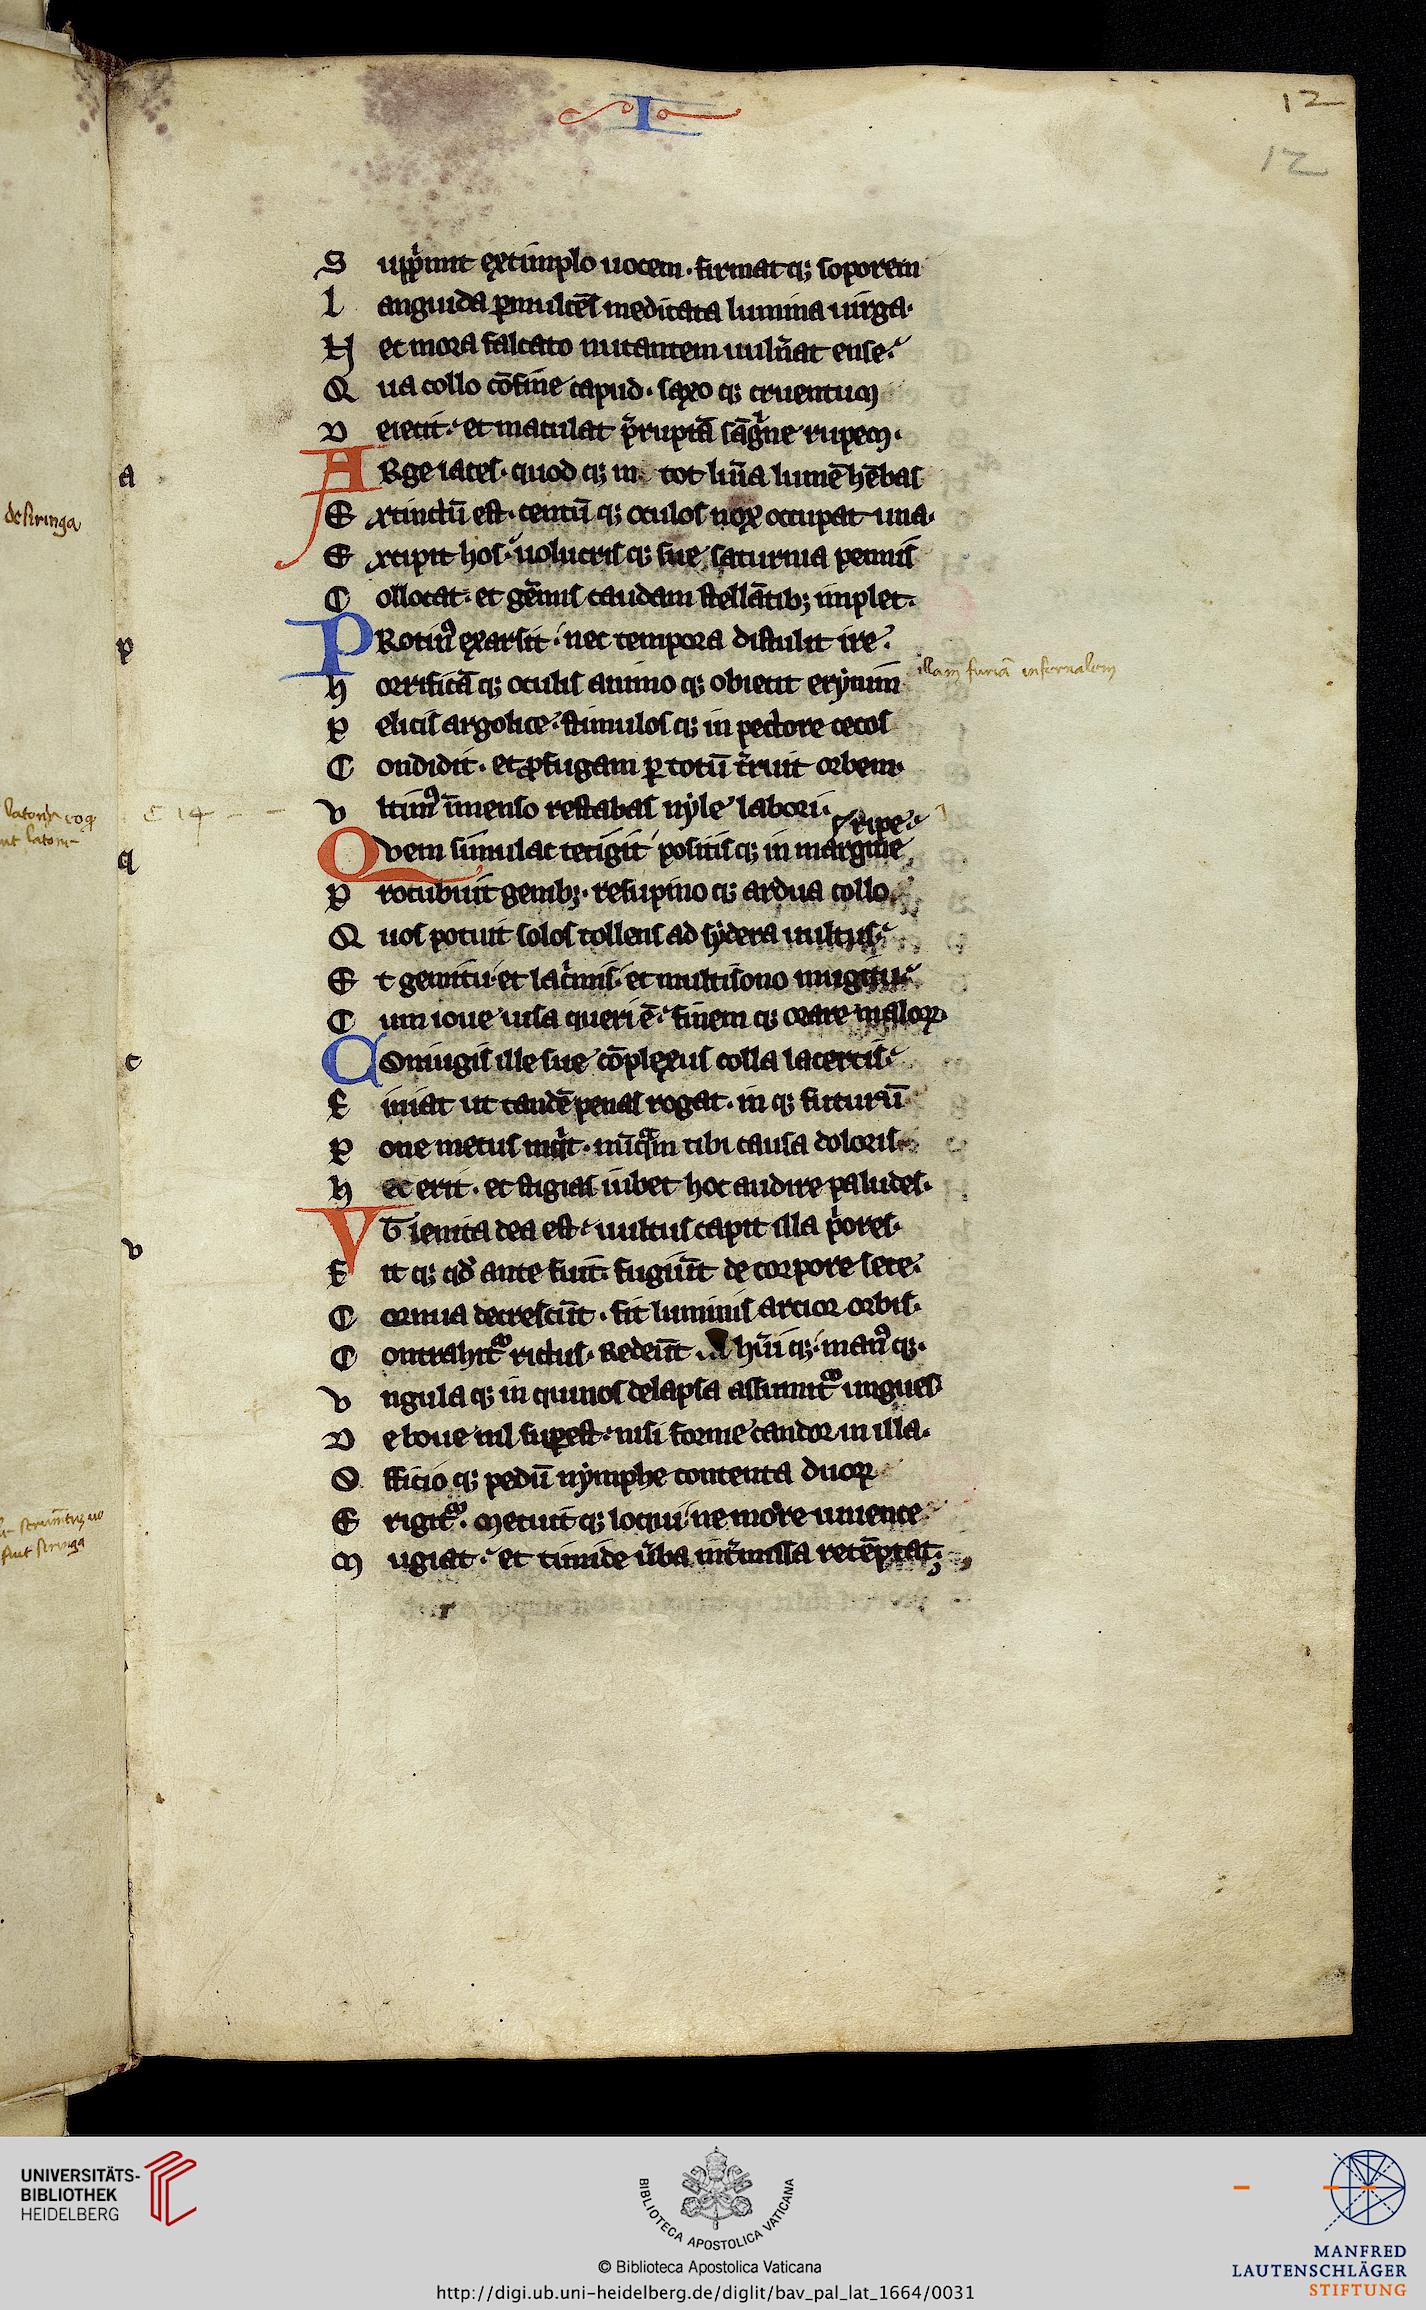 I
12
12
S upp͛mit extimplo uocem · firmat qꝫ soporem
L anguida ꝑmulcēs medicata lumina uirga·
H ec mora falcato nutantem uuln͛at ense·
Q ua collo cōfine capud · saxo qꝫ cruentum
D eiecit· et maculat p͛ruptā sāg͛ne rupem·
a
A Rge iaces· quod qꝫ in tot lūīa lumē hēbas
de siringa
E xtinctū est· centū qꝫ oculos nox occupat una·
E xcipit hos· uolucris qꝫ sue saturnia pennis
C ollocat· et gēmis caudam stellātibꝫ implet·
P Rotinꝰ exarsit· nec tempora distulit ire·
p
illam furiā infernalem
h orrificā qꝫ oculis animo qꝫ obiecit erẏnim
P elicis argolice· stimulos qꝫ in pectore cecos
C ondidit · et ꝓfugam ꝑ totū t͛ruit orbem·
V ltimꝰ īmenso restabas nẏle labori·
C 14
ripe·
Q Vem simulac tetigit positis qꝫ in margine
q
P rocubuit genibꝫ· resupino qꝫ ardua collo
Q uos potuit solos tollens ad sẏdera uultus·
E t gemitu· et lac͛mis· et multisono mugitu·
C um ioue uisa queri ē· finem qꝫ orare maloꝝ
C Oniugis ille sue cōplexus colla lacertis·
c
F iniat ut tandē penas rogat· in qꝫ futurū
P one metus inq͛t · nūq̄m tibi causa doloris·
h ec erit · et stigias iubet hoc audire paludes·
V T lenita dea est· uultus capit illa p͛ores·
v
F it qꝫ qd̓ ante fuit· fugiūt de corpore sete·
C ornua decrescūt · fit luminis arcior orbis·
C ontrahit᷑ rictus· Redeūt hūi qꝫ· manꝰ qꝫ·
V ngula qꝫ in quinos delapsa assumit᷑ ungues
D e boue nil suꝑest· nisi forme candor in illa·
O fficio qꝫ pedū nẏmphe contenta duoꝝ
E rigit᷑· Metuit qꝫ loqui ne more iuuence
M ugiat· et timide ūba int͛missa retēptat·
UNIVERSITÄTS-
BIBLIOTHEK
HEIDELBERG
BIBLIOTECA APOSTOLICA VATICANA
© Biblioteca Apostolica Vaticana
http://digi.ub.uni-heidelberg.de/diglit/bav_pal_lat_1664/0031
MANFRED
LAUTENSCHLÄGER
STIFTUNG